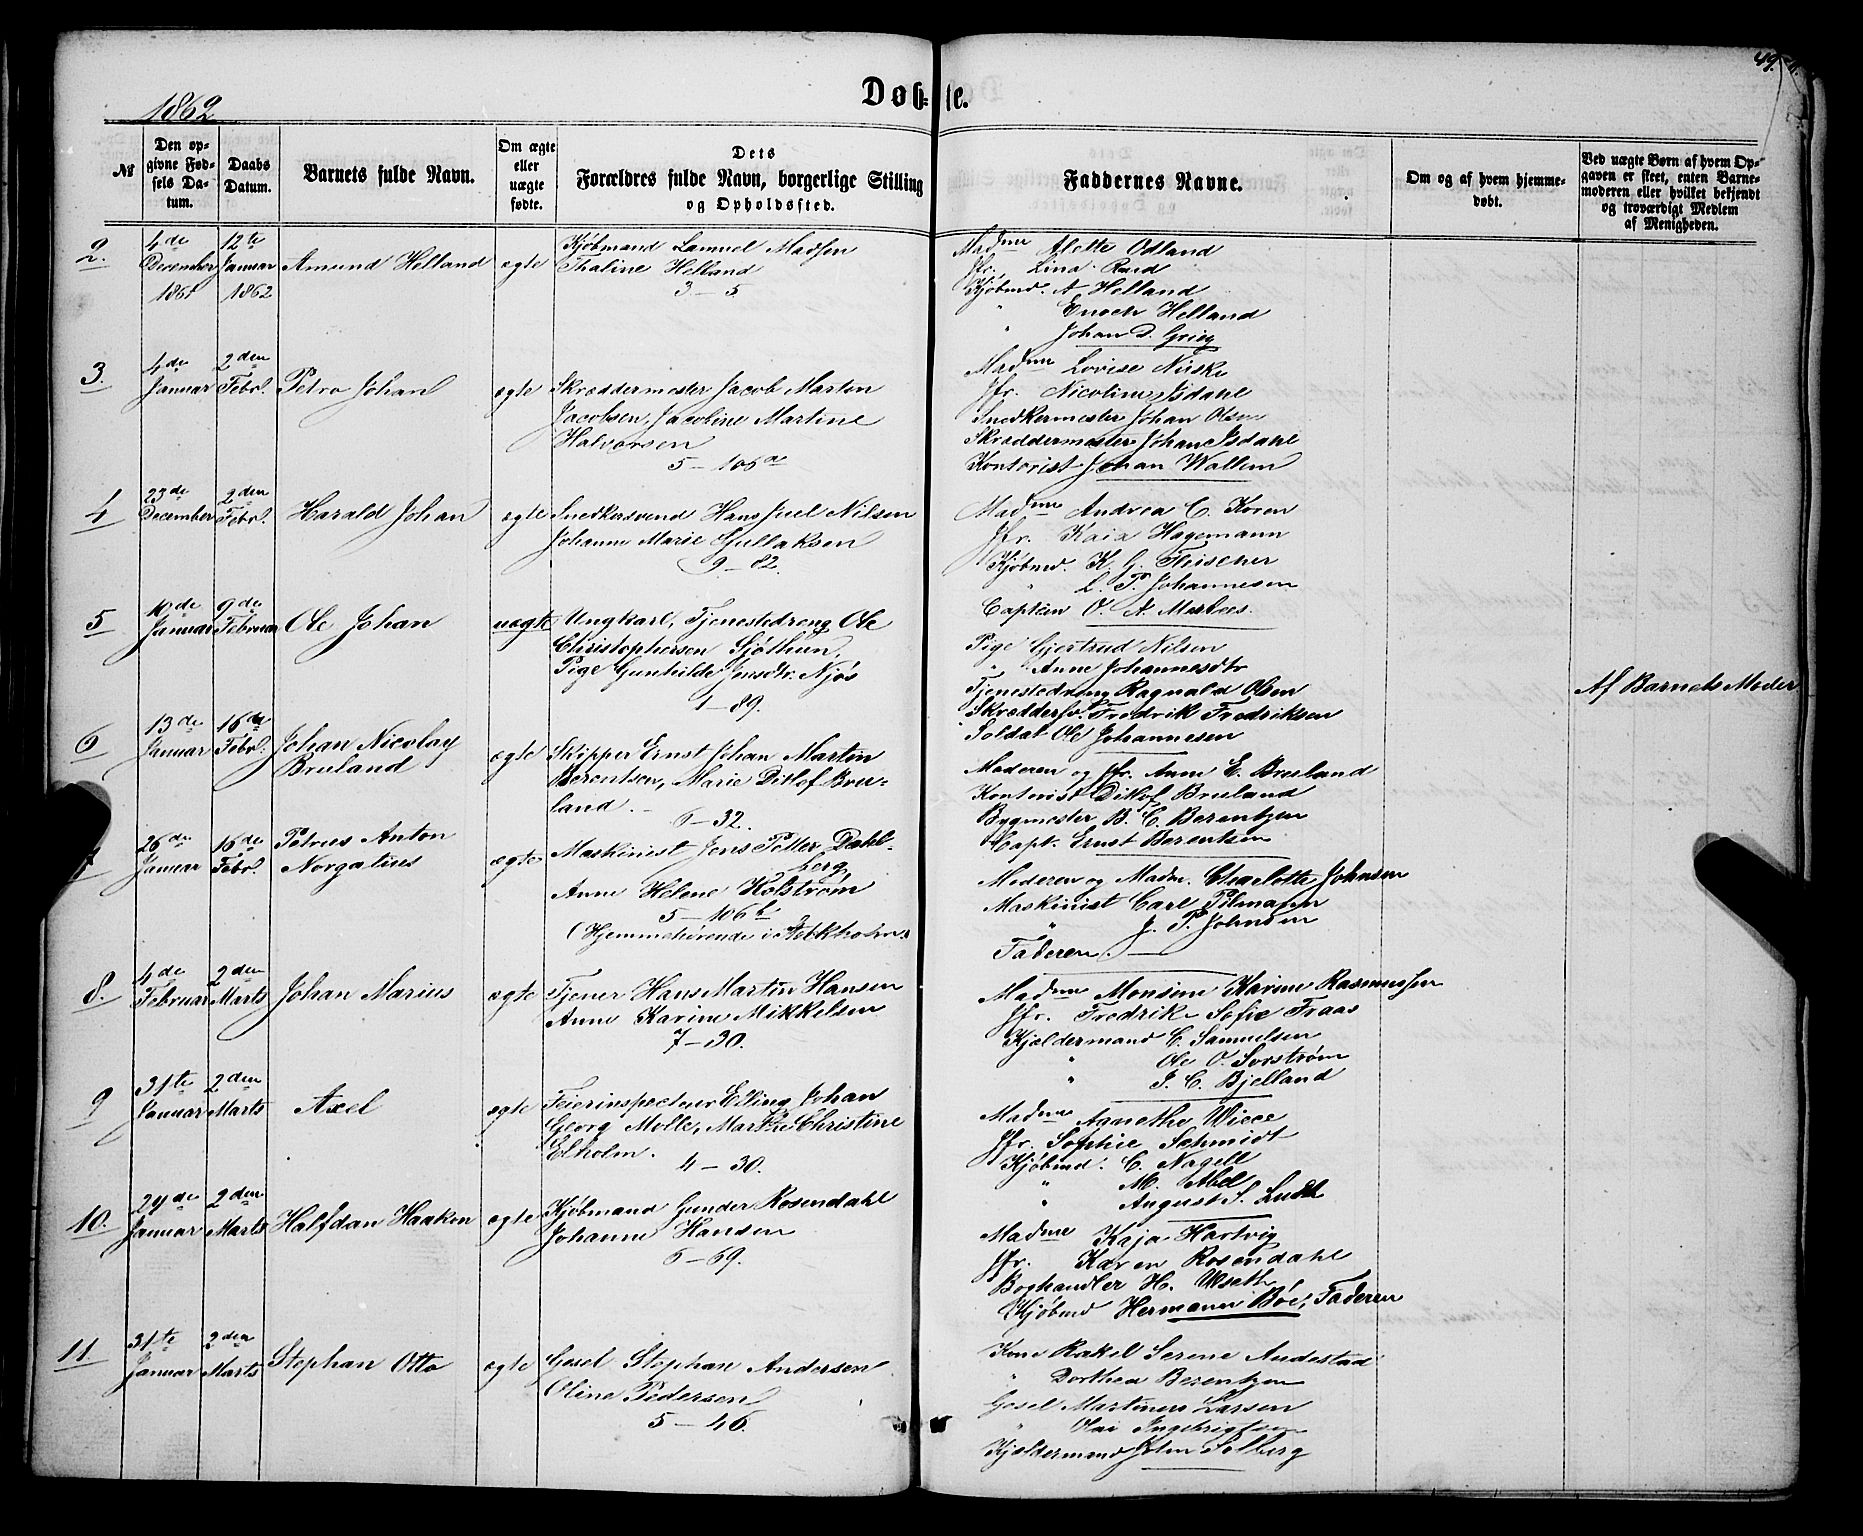 49.
1862
Døbte.
№
Den opgivne Fødsels Datum.
Daabs Datum.
Barnets fulde Navn.
Om ægte eller uægte fødte.
Dets Forældres fulde Navn, borgerlige Stilling og Opholdssted.
Faddernes Navne.
Om og af hvem hjemmedøbt.
Ved uægte Børn af hvem Opgaven er skeet, enten Barnemoderen eller hvilket bekjendt og troværdigt Medlem af Menigheden.
2.
4de December 1861
12te Januar 1862
Amund Helland
ægte
Kjøbmand Samuel Madsen
Thaline Helland
3 – 5.
Madme Alette Odland
Jfr. Lina
Kjøbmd. A Helland
" Enoch Helland
" Johan D. Grieg
3.
4de Januar
2den Febr.
Petro Johan
ægte
Skræddermester Jacob Martin
Jacobsen, Jacobine Martine
Halvorsen
5 – 106a
Madme Lovise Niske
Jfr. Nicoline Isdahl
Snedkermester Johan Olsen
Skræddermester Johan Isdahl
Kontorist Johan Wallem
4
23de December
2den Febr.
Harald Johan
ægte
Snedkersvend Hans Juel Nilsen
Johanne Marie Gullaksen
9 – 82.
Madme Andrea C. Koren
Jfr. Kaia Hagemann
Kjøbmd. K. G. Fleischer
" L. P. Johannesen
Captein O. A.
5
10de Januar
9de Februar
Ole Johan
uægte
Ungkarl, Tjenestedreng Ole
Christophersen Sjøthun,
Pige Gunhilde Jensdtr. Njøs
1 – 89.
Pige Gjertrud Nilsen
" Anne Johannesdtr
Tjenestedreng Ragnald Olsen
Skræddersv. Fredrik Fredriksen
Soldat Ole Johannesen
Af Barnets Moder
6
13de Januar
16de Febr.
Johan Nicolay
Bruland
ægte
Skipper Ernst Johan Martin
Berentsen, Marie Ditlof Bru-
land.
6 – 32.
Moderen og Jfr. Anne E. Bruland
Kontorist Ditlof Bruland
Bygmester B. C. Berentzen
Capt. Ernst Berentsen
7
26de Januar
16de Febr.
Petrus Anton
Norgatius
ægte
Maskinist Jens Petter Dahl-
berg
Anne Helene Holstrøm
5 – 106b
(Hjemmehørende i Stokkholm.)
Moderen og Madm. Charlotte Johnsen
Maskinist Carl Pilmann
" J. P. Johnsen
Faderen. —
8.
4de Februar
2den Marts
Johan Marius
ægte
Tjener Hans Martin Hansen
Anne Karine Mikkelsen
7 – 30.
Madme Monsine Karine Rasmussen
Jfr. Fredrike Sofie Fraas
Kjeldermand C. Samuelsen
" Ole O. Sorstrøm
" J. C. Bjelland
9
31te Januar
2den Marts
Axel
ægte
Feierinspecteur Elling Johan
Georg Molle, Marthe Christine
Ekholm.
4 – 30.
Madme Agnethe Wiese
Jfr. Sophie Schmidt
Kjøbmd. C. Nagell
" M. Abel
" August S. Ludt
10.
29de Januar
2den Marts
Halfdan Haakon
ægte
Kjøbmand Gunder Rosendahl
Johanne Hansen
6 – 69.
Madme Kaja Hartvig
Jfr. Karen Rosendahl
Boghandler H. Useth
Kjøbmd Hermann Bøe, Faderen
11
31te Januar
2den Marts
Stephan Otto
ægte
Gesel Stephan Andersen
Oline Pedersen
5 – 46.
Kone Rakel Serene Audestad
" Dorthea Berentzen
Gesel Martinus Larsen
" Olai Ingebrigtsen
Kjeldermand John Solberg